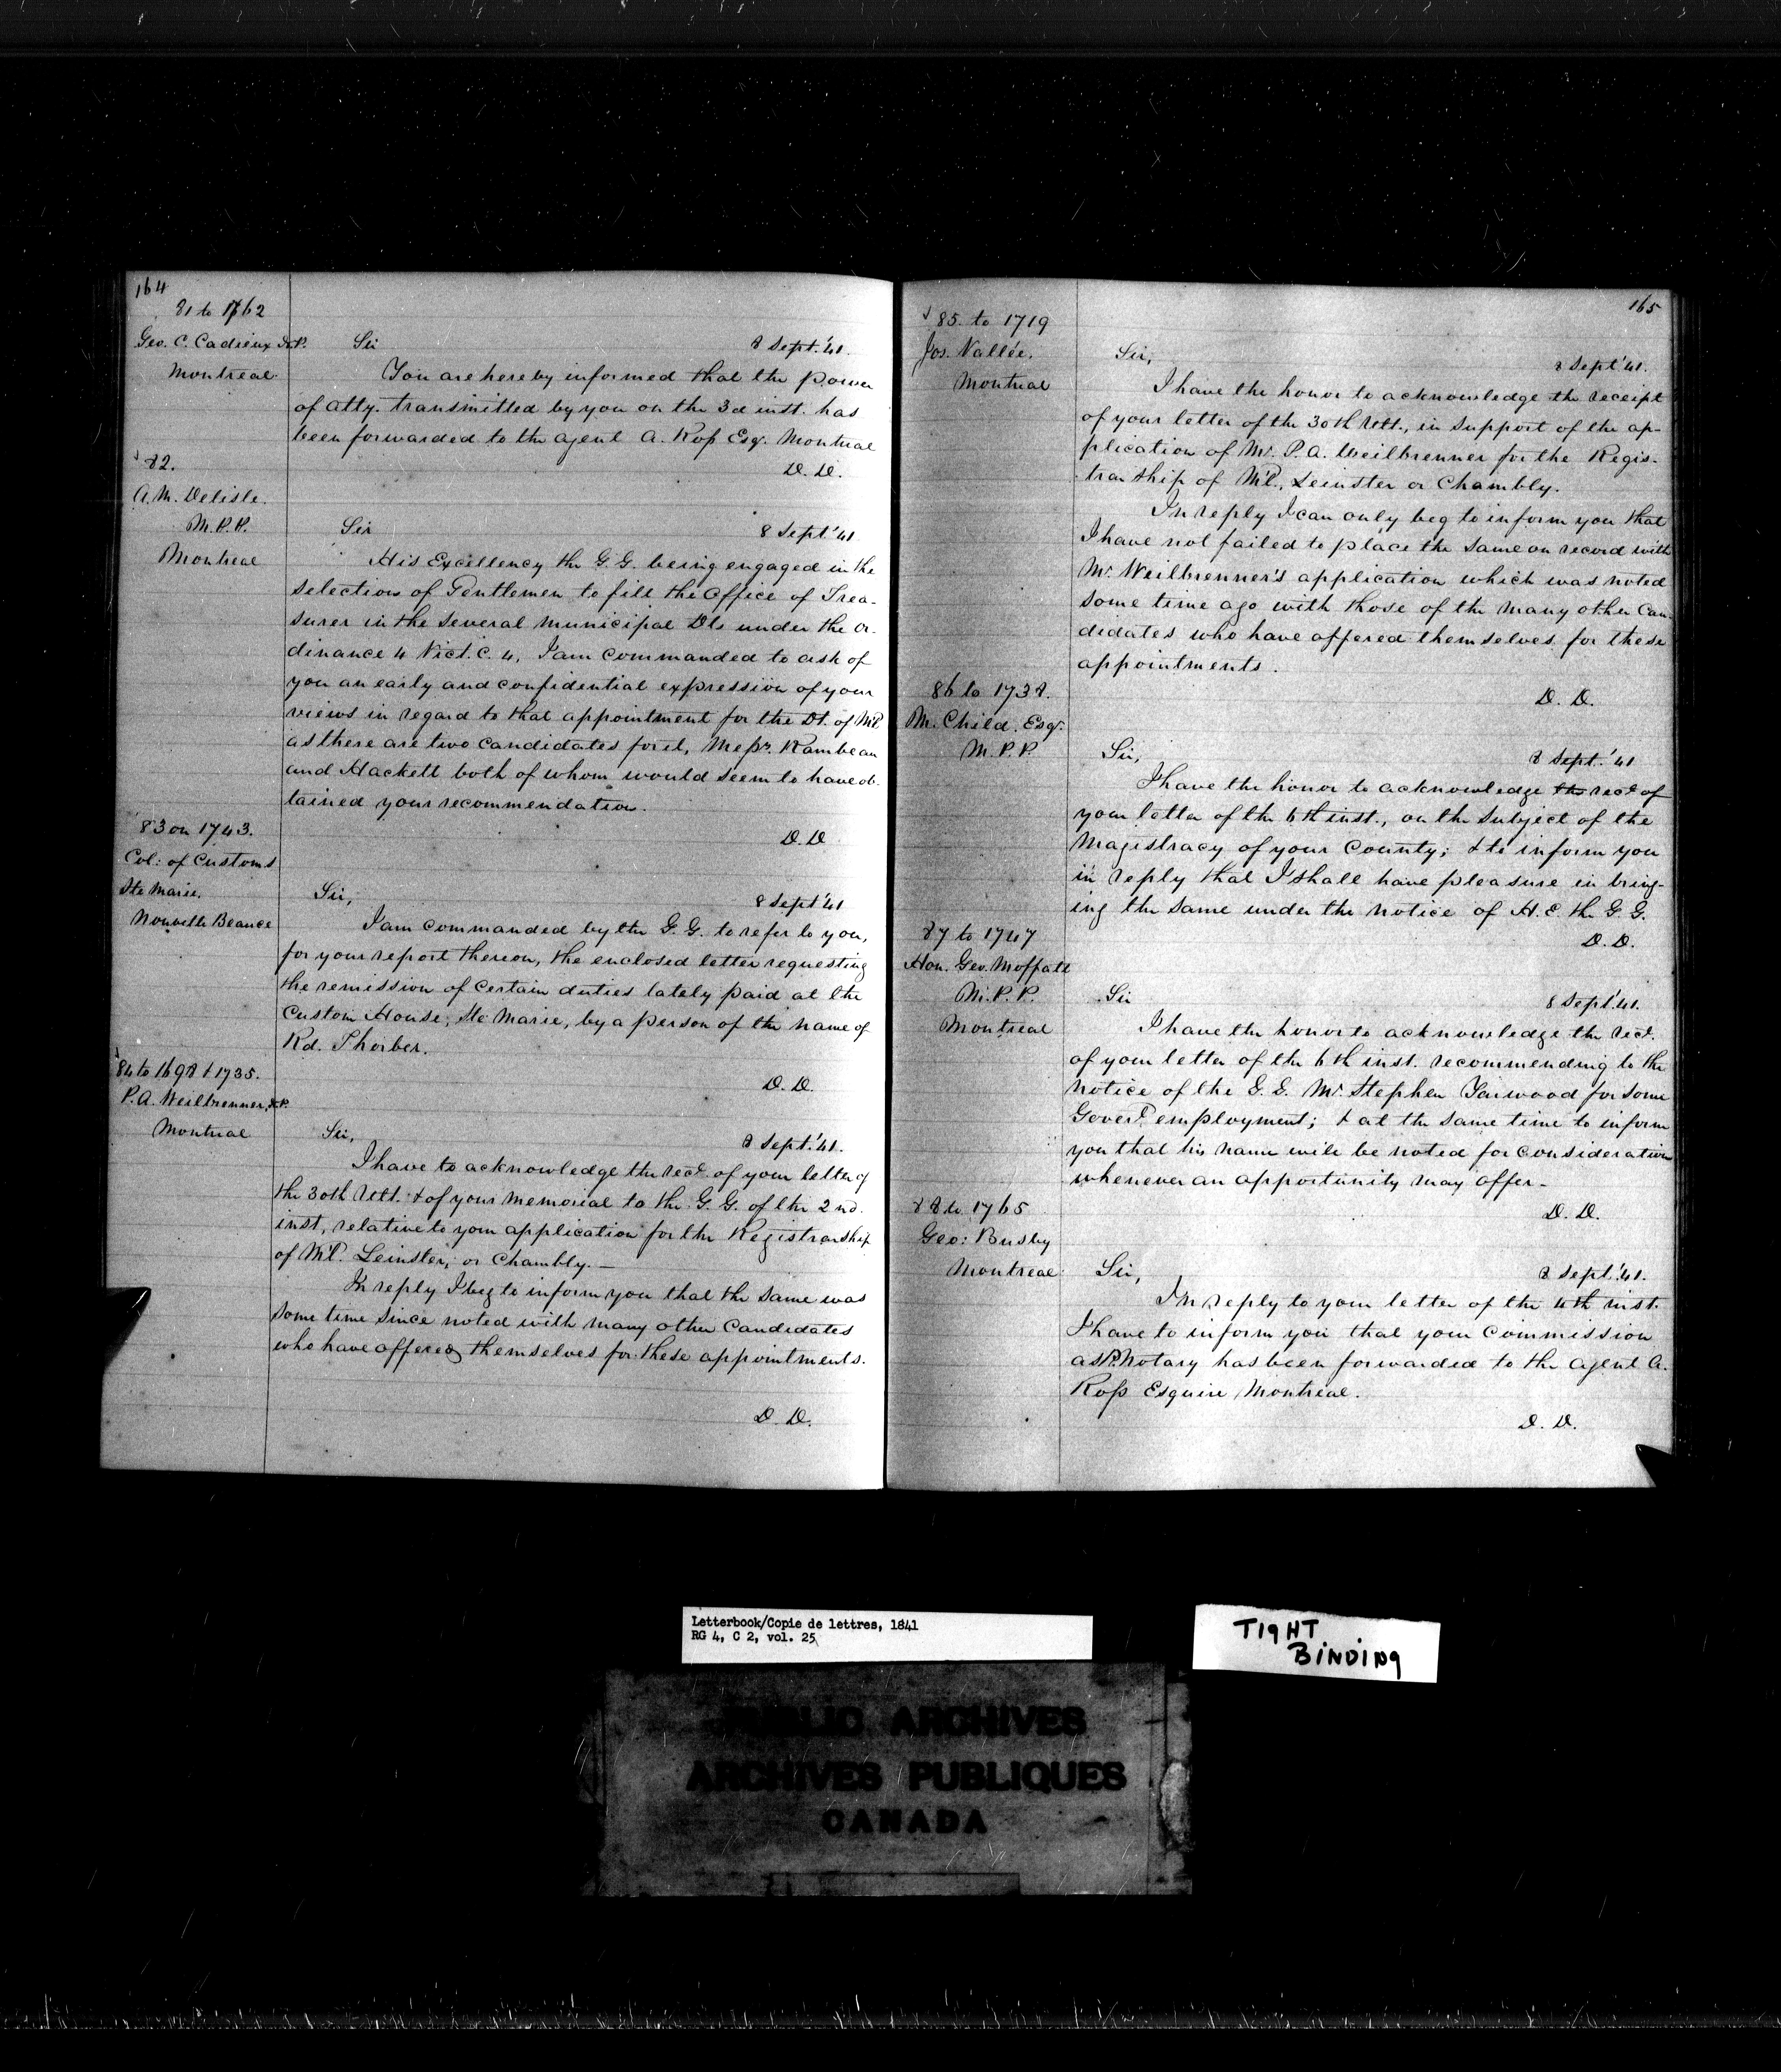 164
81 to 1762
Geo. C. Cadieux N.P.
Montreal
Sir
8 Sept. '41.
You are hereby informed that the power
of atty. transmitted by you on the 3d inst. has
been forwarded to the agent A. Ross Esqr. Montreal
D. D.
82.
A. M. Delisle.
M.P.P.
Montreal
Sir
8 Sept. '41
His Excellency the G.G. being engaged in the
selection of Gentlemen to fill the Office of Trea-
surer in the several Municipal Dts under the Or-
dinance 4 Vict. C. 4, I am commanded to ask of
you an early and confidential expression of your
views in regard to that appointment for the Dt. of Ml.
as there are two candidates for it, Messrs. Rambeau
and Hackett both of whom would seem to have ob-
tained your recommendation.
D. D
83 on 1743.
Col: of Customs
Ste Marie.
Nouvelle Beauce
Sir,
8 Sept '41
I am commanded by the G.G. to refer to you,
for your report thereon, the enclosed letter requesting
the remission of certain duties lately paid at the
Custom House, Ste Marie, by a person of the name of
Rd. Thorber.
D. D.
84 to 1698 & 1735.
P.A. Weilbrenner, N.P.
Montreal
Sir,
8 Sept. '41.
I have to acknowledge the recd. of your letter of
the 30th Ult. & of your memorial to the G.G. of the 2nd.
inst, relative to your application for the Registrarship
of Ml. Leinster, or Chambly. —
In reply I beg to inform you that the same was
some time since noted with many other Candidates
who have offered themselves for these appointments.
D. D.
165
85. to 1719
Jos. Vallée.
Montreal
Sir,
8 Sept '41.
I have the honor to acknowledge the receipt
of your letter of the 30th Ult., in support of the ap-
plication of Mr. P.A. Weilbrenner for the Regis-
trarship of Ml., Leinster or Chambly.
In reply I can only beg to inform you that
I have not failed to place the same on record with
Mr. Weilbrenner's application which was noted
some time ago with those of the many other Can-
didates who have offered themselves for these
appointments.
D. D.
86 to 1738.
M. Child. Esqr.
M.P.P.
Sir,
8 Sept. '41
I have the honor to acknowledge the recd. of
your letter of the 6th inst., on the subject of the
Magistracy of your County; & to inform you
in reply that I shall have pleasure in bring-
ing the same under the notice of H.E. the G.G.
D. D.
87 to 1747
Hon. Geo. Moffatt
M.P.P.
Montreal
Sir
8 Sept. '41.
I have the honor to acknowledge the recd.
of your letter of the 6th inst. recommending to the
notice of the G.G. Mr. Stephen Yarwood for some
Govert. employment; & at the same time to inform
you that his name will be noted for consideration
whenever an opportunity may offer -
D. D.
88 to 1765
Geo: Busby
Montreal
Sir,
8 Sept. '41.
In reply to your letter of the 4th inst.
I have to inform you that your Commission
as P. Notary has been forwarded to the Agent A.
Ross Esquire Montreal.
D. D.
Letterbook/Copie de lettres, 1841
RG 4, C 2, vol. 25
TIGHT
BINDING
PUBLIC ARCHIVES
ARCHIVES PUBLIQUES
CANADA